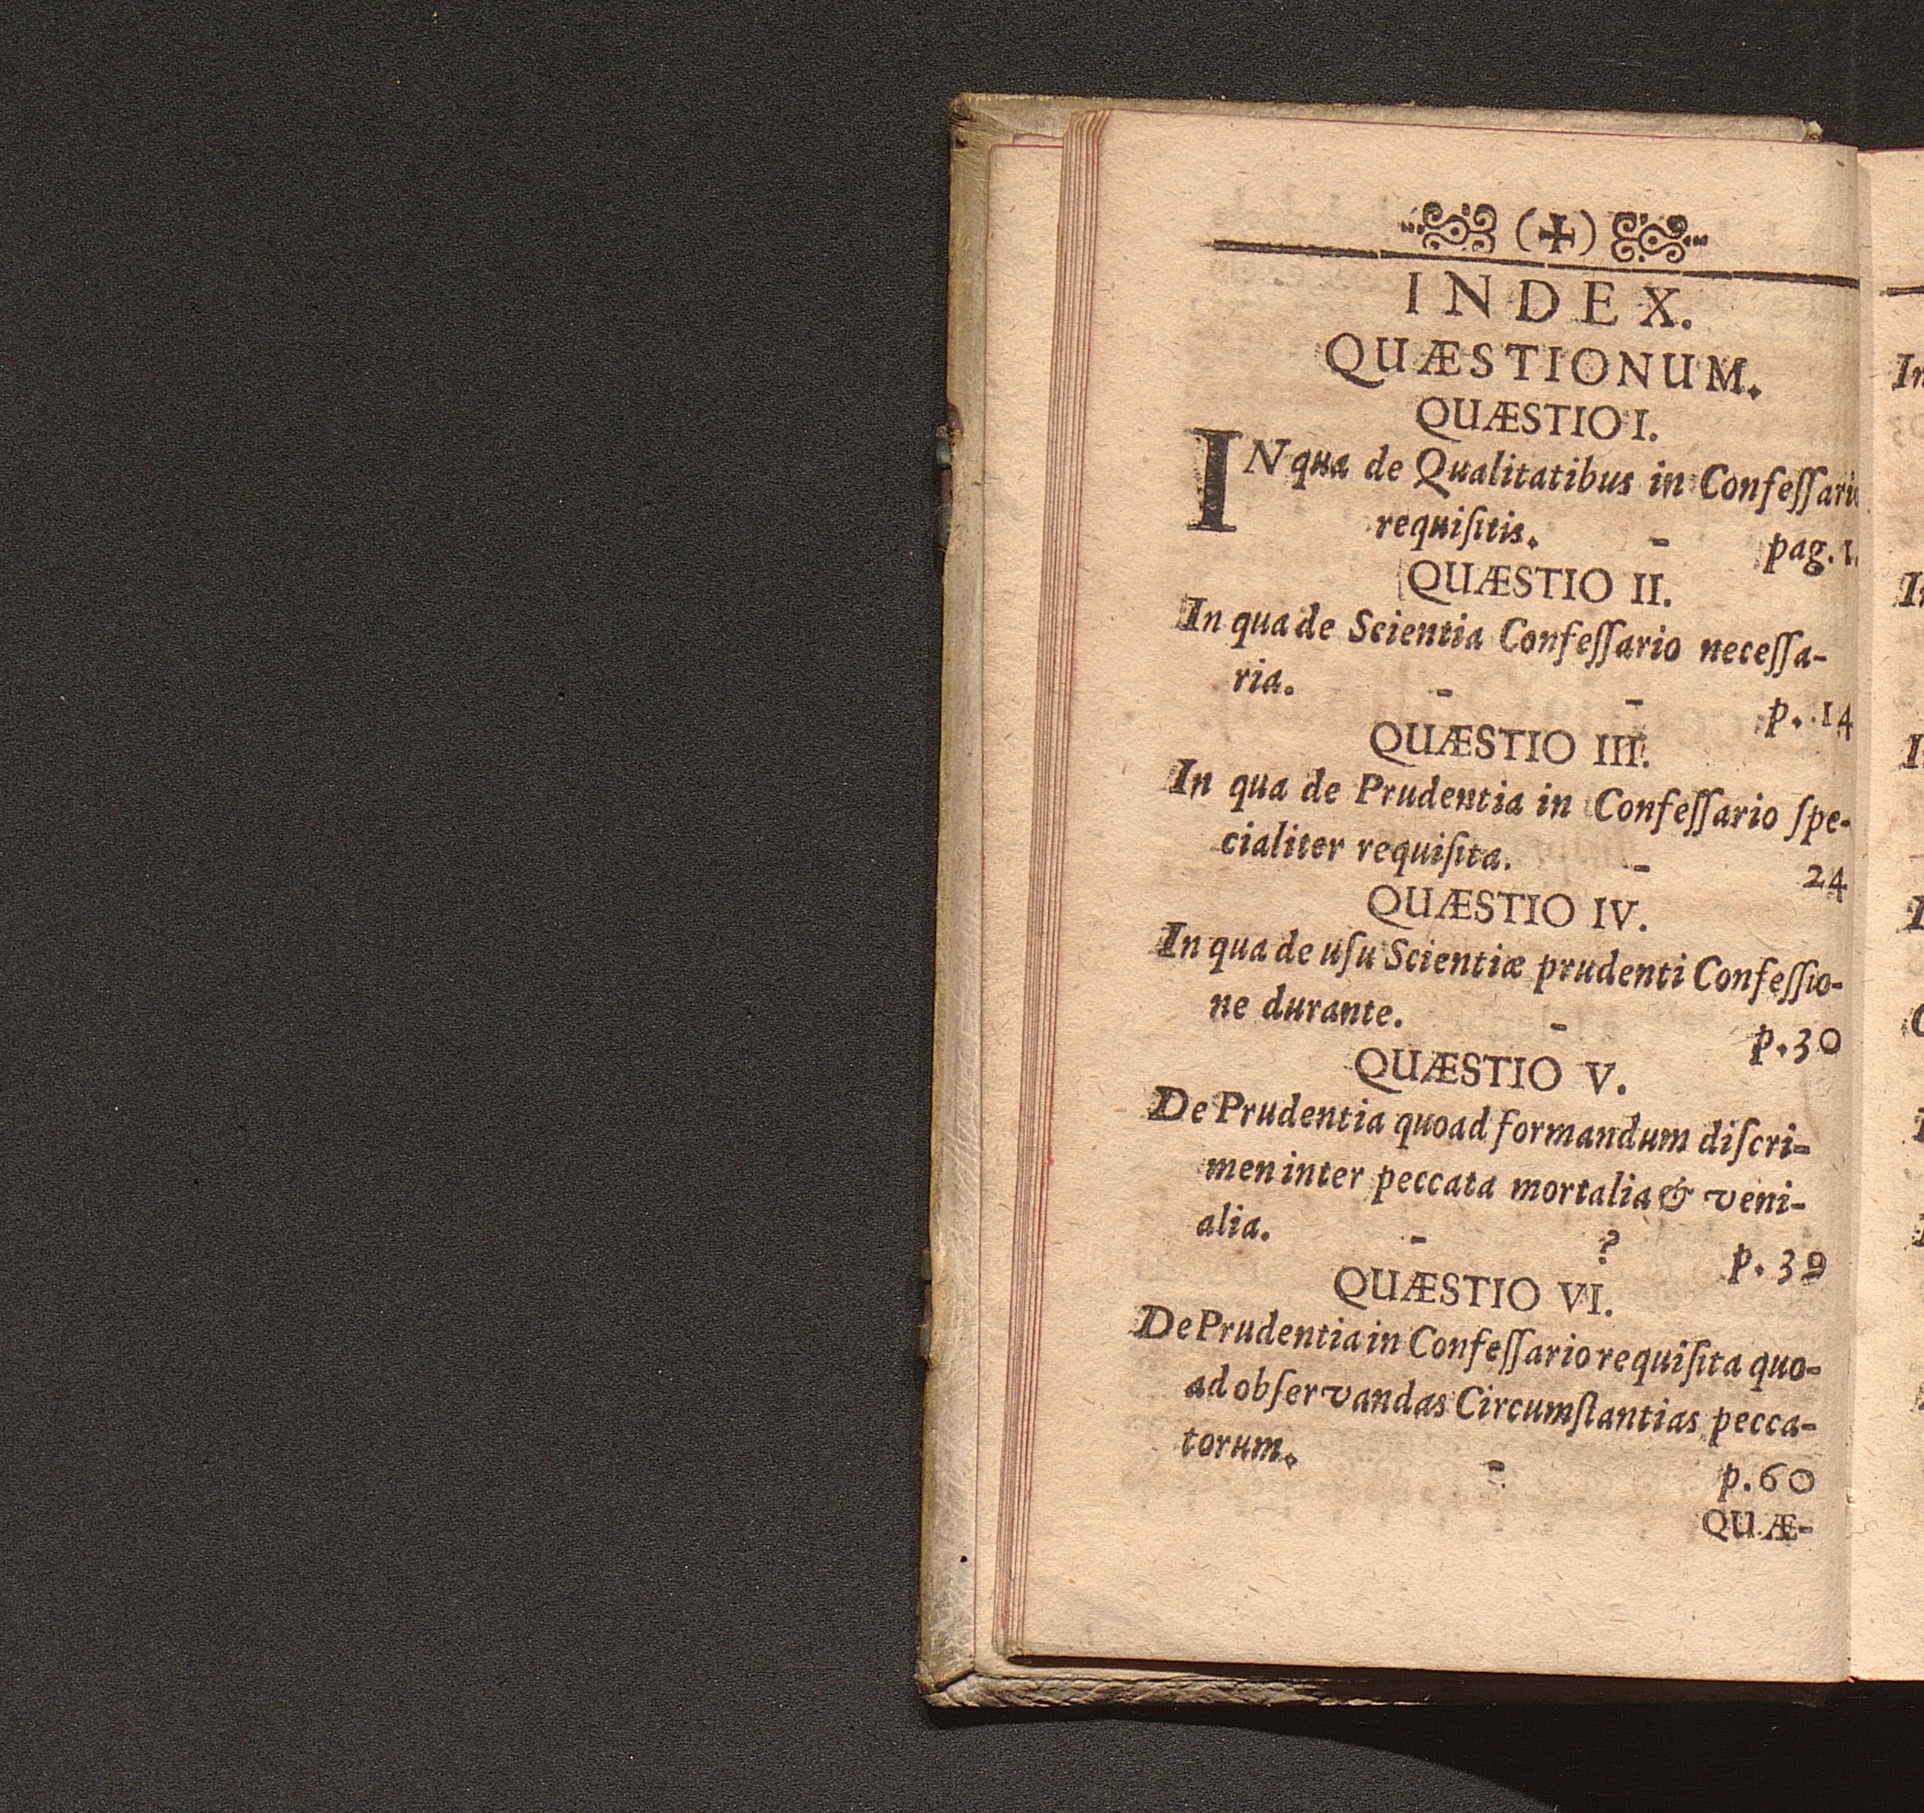 (✠)
INDEX.
QUÆSTIONUM.
QUÆSTIO I.
IN qua de Qualitatibus in Confeſſario
requiſitis. - pag. 1.
QUÆSTIO II.
In qua de Scientia Confeſſario neceſſa-
ria. - - p. 14
QUÆSTIO III.
In qua de Prudentia in Confeſſario ſpe-
cialiter requiſita. - 24
QUÆSTIO IV.
In qua de uſu Scientiæ prudenti Confeſſio-
ne durante. - p. 30
QUÆSTIO V.
De Prudentia quoad formandum diſcri-
men inter peccata mortalia & veni-
alia. - ? p. 39
QUÆSTIO VI.
De Prudentia in Confeſſario requiſita quo-
ad obſervandas Circumſtantias pecca-
torum. - p. 60
QUÆ-